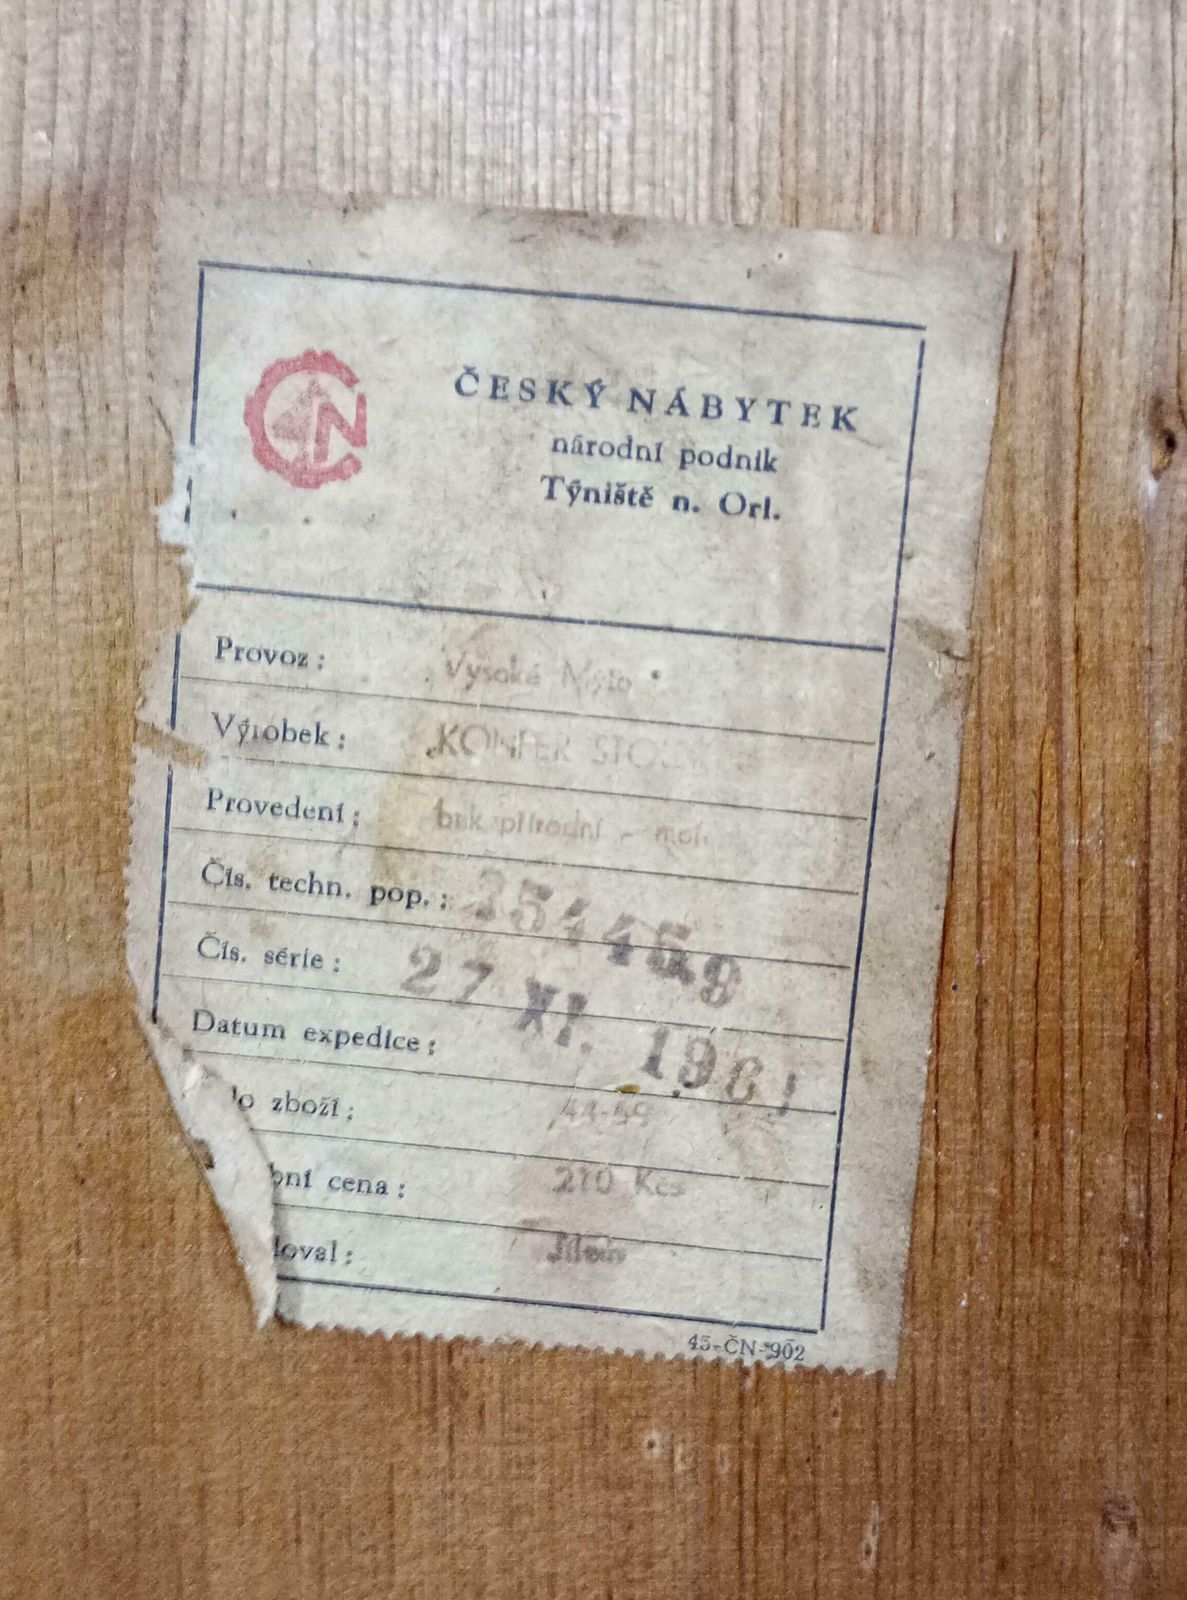 ČN
ČESKÝ NÁBYTEK
národní podnik
Týniště n. Orl.
Provoz: Vysoké Mýto
Výrobek: KONFER STO
Provedení: buk přírodní - moř.
Čís. techn. pop.:
Čís. série:
27 XI. 1961
Datum expedice:
lo zboží: 44-59
bní cena: 210 Kčs
loval:
45-ČN-902